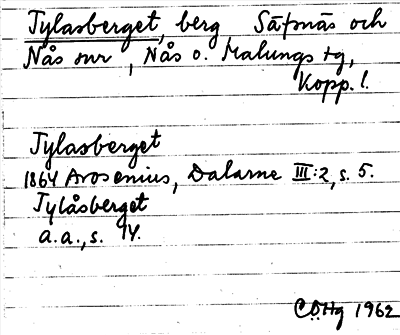 Tylasberget, berg Säfsnäs och
Nås snr, Nås o. Malungs tg,
Kopp. l.
Tylasberget
1864 Arosenius, Dalarne III:2, s. 5.
Tylåsberget
a.a., s. 14.
CÖHg 1962